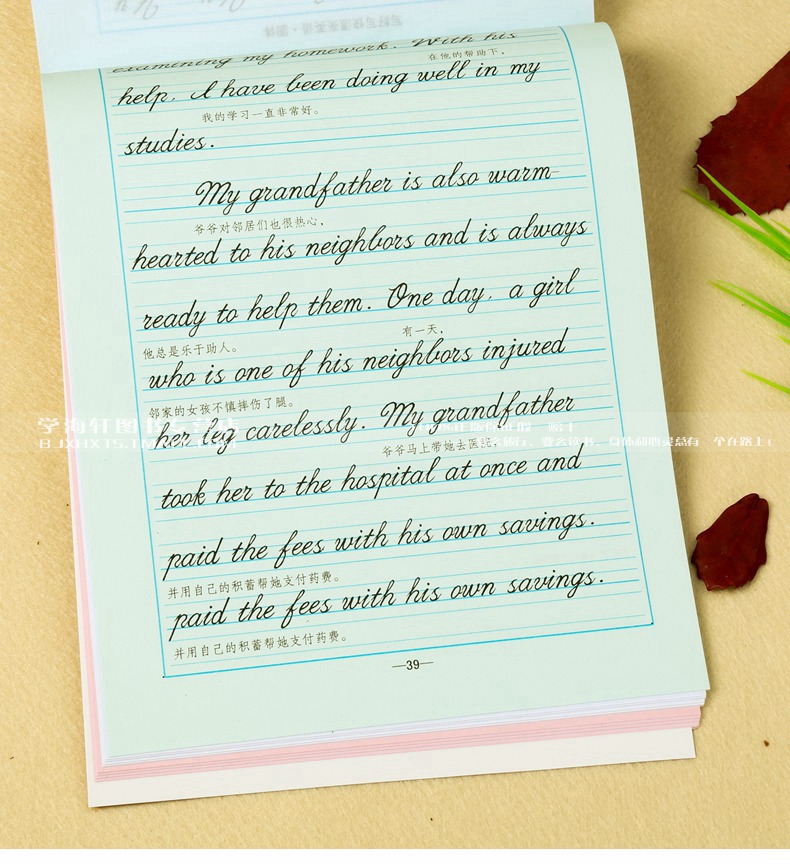 examining my homework. With his
在他的帮助下，
help, I have been doing well in my
我的学习一直非常好。
studies.
My grandfather is also warm-
爷爷对邻居们也很热心，
hearted to his neighbors and is always
ready to help them. One day, a girl
他总是乐于助人。 有一天，
who is one of his neighbors injured
邻家的女孩不慎摔伤了腿。
her leg carelessly. My grandfather
爷爷马上带她去医院，
took her to the hospital at once and
paid the fees with his own savings.
并用自己的积蓄帮她支付药费。
paid the fees with his own savings.
并用自己的积蓄帮她支付药费。
—39—
学海轩图书专营店